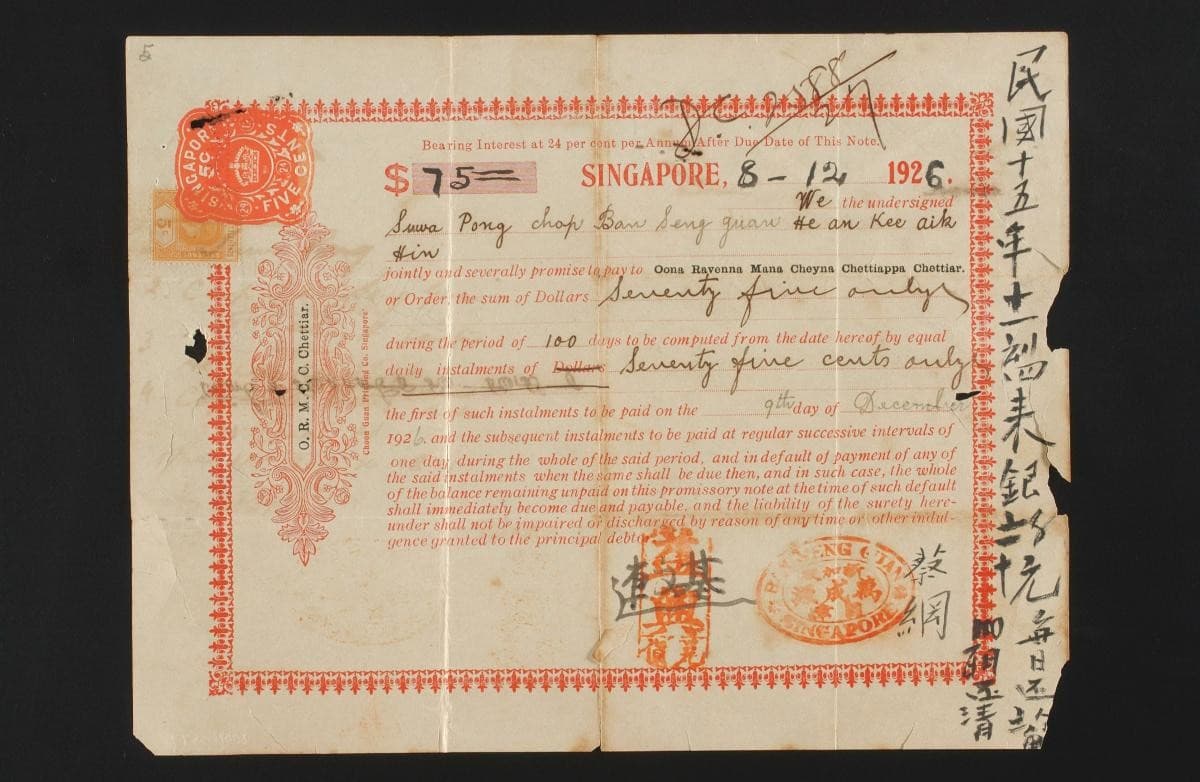 5
D.C. 2188
27
SINGAPORE
5C
STNEC FIVE CENTS
Bearing Interest at 24 per cent per Annum After Due Date of This Note.
$ 75= SINGAPORE, 8 - 12 1926.
We the undersigned
Suwa Pong chop Ban Seng guan He an Kee aik
Hin
jointly and severally promise to pay to Oona Ravenna Mana Cheyna Chettiappa Chettiar.
or Order, the sum of Dollars Seventy five only
during the period of 100 days to be computed from the date hereof by equal
daily instalments of Dollars Seventy five cents only
the first of such instalments to be paid on the 9th day of December
1926. and the subsequent instalments to be paid at regular successive intervals of
one day during the whole of the said period, and in default of payment of any of
the said instalments when the same shall be due then, and in such case, the whole
of the balance remaining unpaid on this promissory note at the time of such default
shall immediately become due and payable, and the liability of the surety here-
under shall not be impaired or discharged by reason of any time or other indul-
gence granted to the principal debtor.
O. R. M. C. C. Chettiar.
Choon Guan Printing Co. Singapore
BAN SENG GUAN
SINGAPORE
蔡綱
民國十五年十一月
銀
元每日还
清